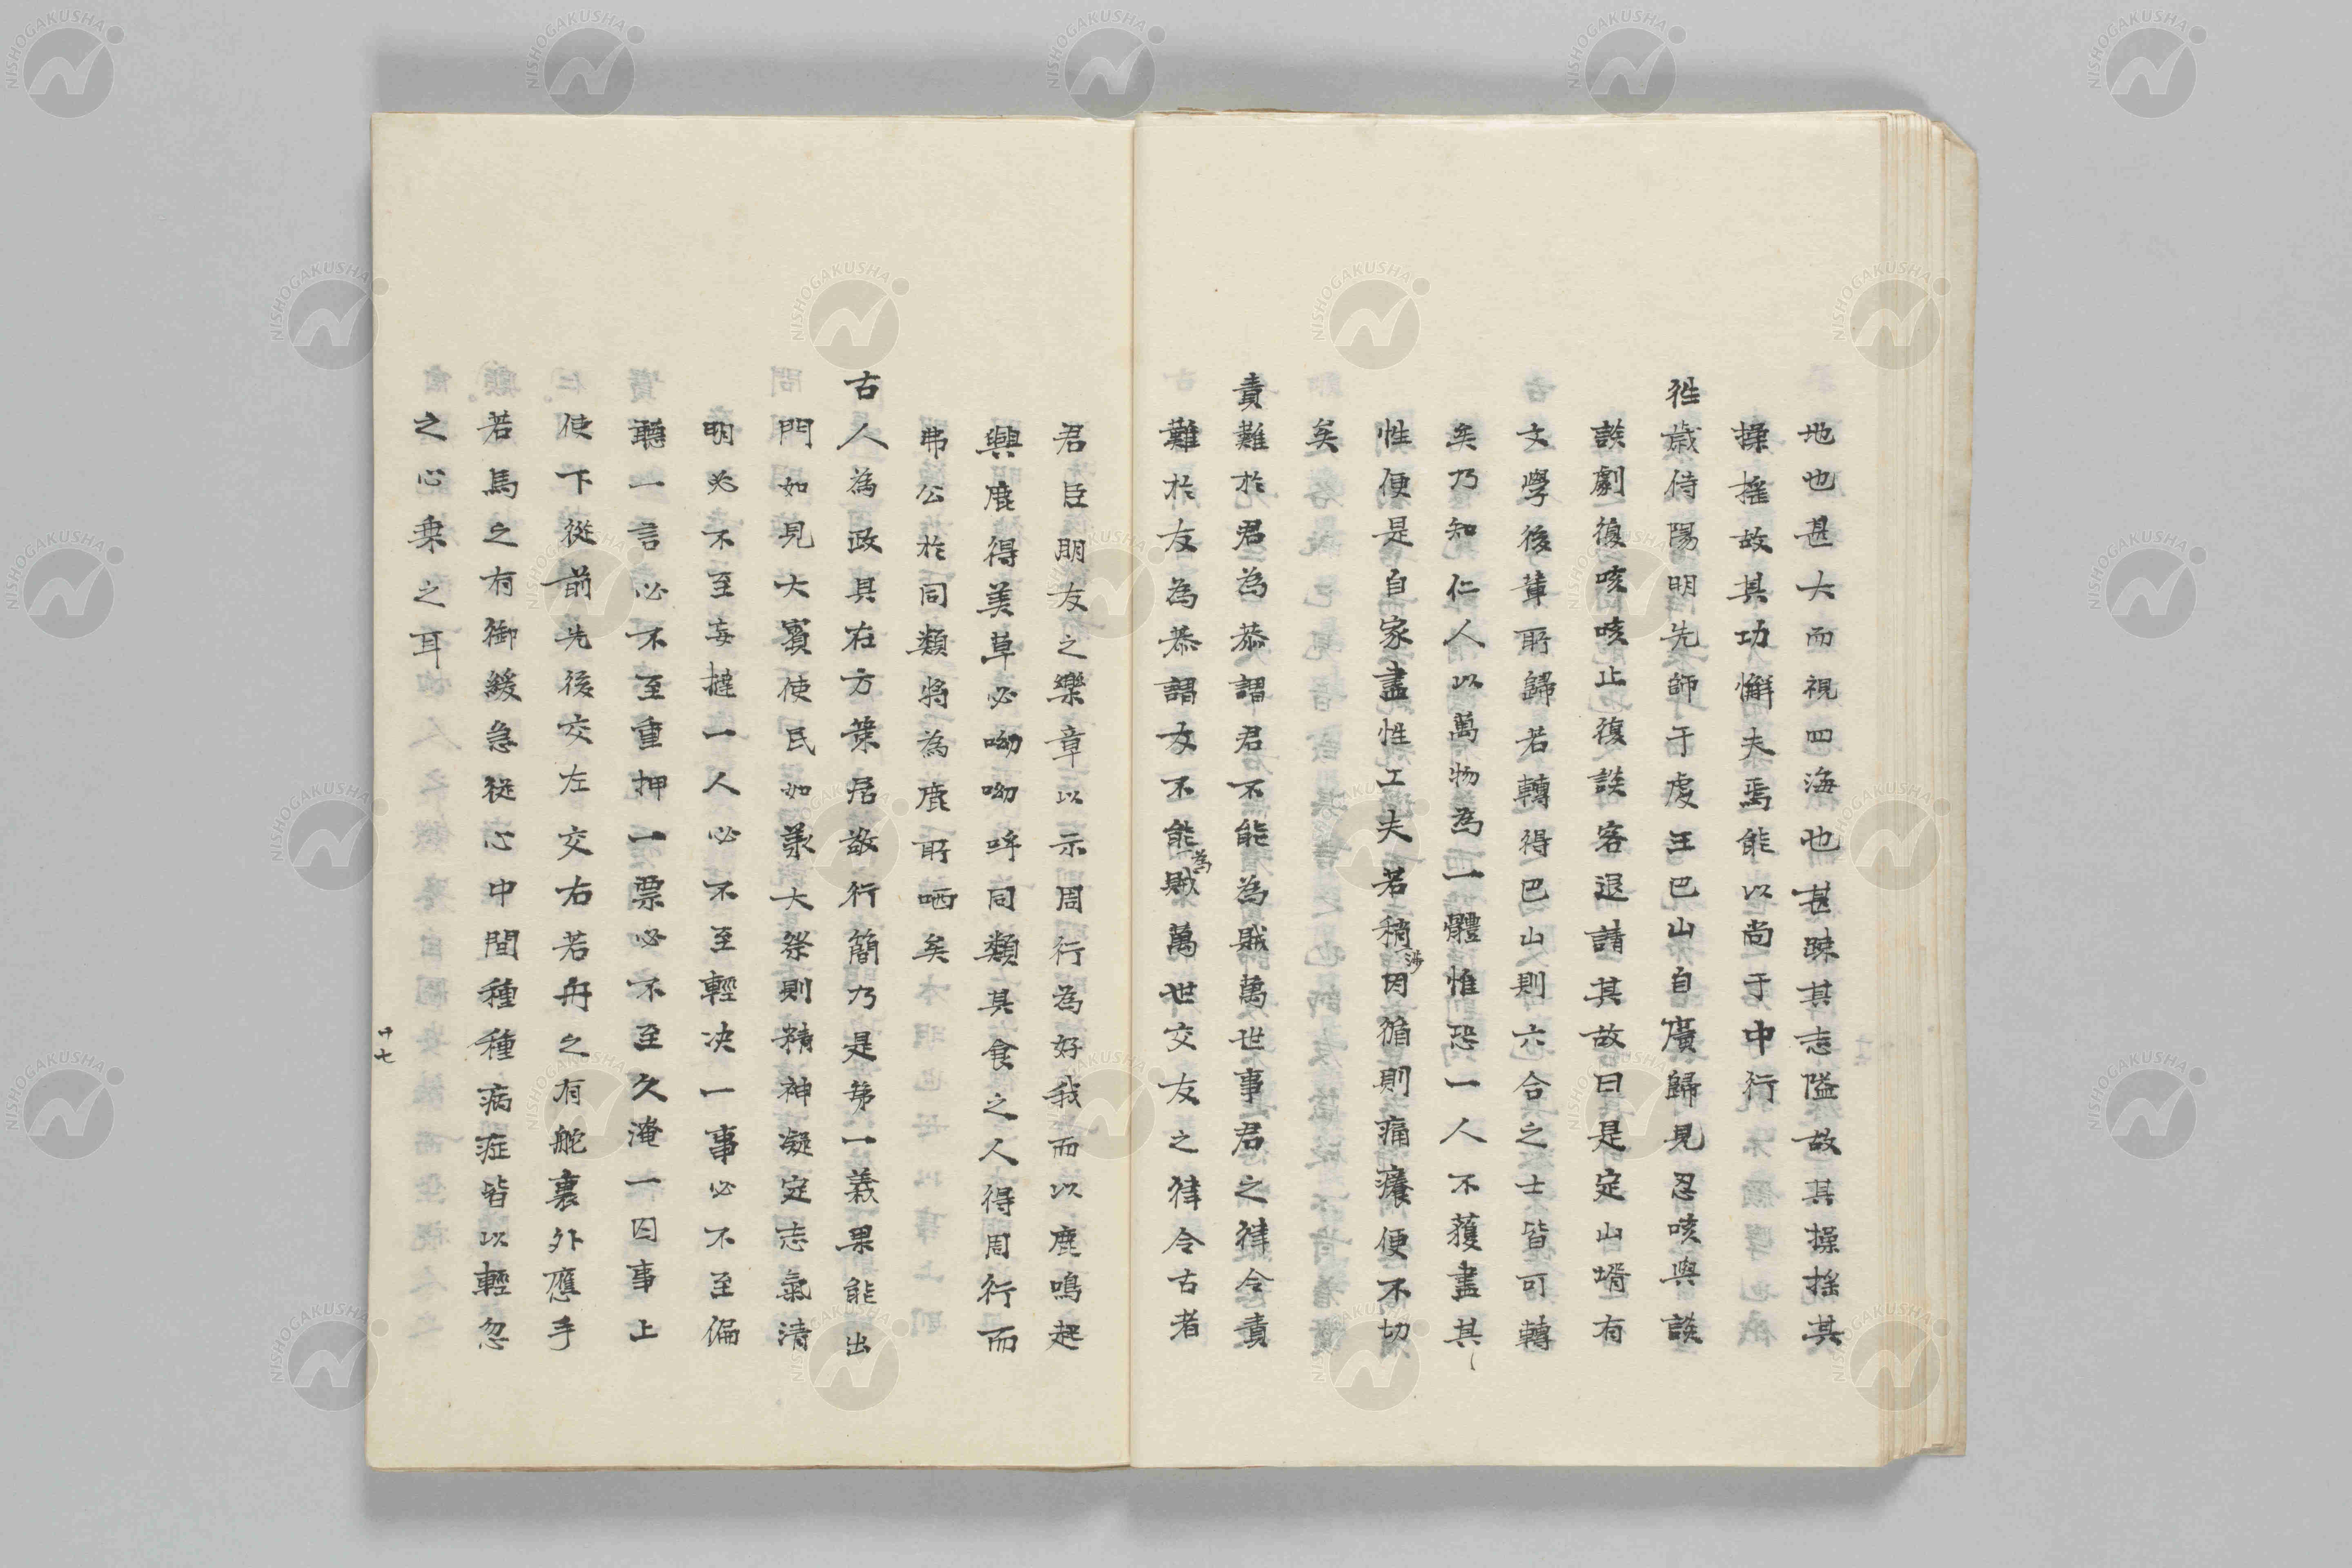 地也甚大而視四海也甚踈其志隘故其操揺其
操揺故其功懈夫焉能以尚于中行
徃歳侍陽明先師于虔王巴山自廣歸見忍咳與談
談劇復咳咳止復談客退請其故曰是定山壻有
文學後軰所歸若轉得巴山久則六合之士皆可轉
矣乃知仁人以萬物為一體惟恐一人不蒦盡其
性便是自家盡性工夫若稍涉因循則痛癢便不切
矣
責難於君為恭謂君不能為賊萬世事君之律令責
難於友為恭謂友不能為賊萬世交友之律令古者
君臣朋友之樂章以示周行為好我而以鹿鳴起
興鹿得美草必呦呦呼同類其食之人得周行而
弗公於同類將為鹿所哂矣
古人為政具在方䇿居敬行簡乃是苐一義果能出
門如見大賓使民如羕大祭則精神凝定志氣清
明必不至妄撻一人必不至輕决一事必不至偏
聽一言必不至重押一票必不至久淹一囚事上
使下從前先後交左交右若舟之有舵裏外應手
若馬之有御緩急從心中間種種病症皆以輕忽
之心乗之耳
十七
NISHOGAKUSHA